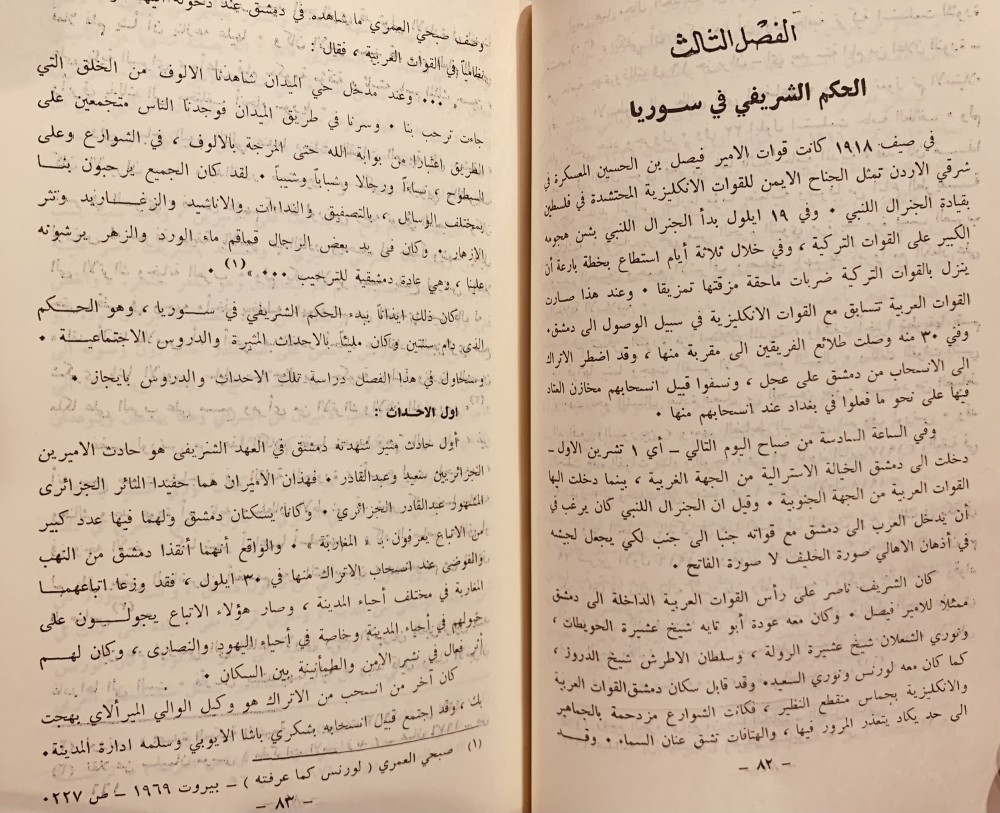 الفصل الثالث
الحكم الشريفي في سوريا
في صيف ١٩١٨ كانت قوات الامير فيصل بن الحسين المعسكرة في
شرقي الاردن تمثل الجناح الايمن للقوات الانكليزية المحتشدة في فلسطين
بقيادة الجنرال اللنبي ٠ وفي ١٩ ايلول بدأ الجنرال اللنبي بشن هجومه
الكبير على القوات التركية ، وفي خلال ثلاثة أيام استطاع بخطة بارعة أن
ينزل بالقوات التركية ضربات ماحقة مزقتها تمزيقا ٠ وعند هذا صارت
القوات العربية تتسابق مع القوات الانكليزية في سبيل الوصول الى دمشق٠
وفي ٣٠ منه وصلت طلائع الفريقين الى مقربة منها ، وقد اضطر الاتراك
الى الانسحاب من دمشق على عجل ، ونسفوا قبيل انسحابهم مخازن العتاد
فيها على نحو ما فعلوا في بغداد عند انسحابهم منها ٠
وفي الساعة السادسة من صباح اليوم التالي – أي ١ تشرين الاول –
دخلت الى دمشق الخيالة الاسترالية من الجهة الغربية ، بينما دخلت اليها
القوات العربية من الجهة الجنوبية ٠ وقيل ان الجنرال اللنبي كان يرغب في
أن يدخل العرب الى دمشق مع قواته جنبا الى جنب لكي يجعل لجيشه
في أذهان الاهالي صورة الحليف لا صورة الفاتح ٠
كان الشريف ناصر على رأس القوات العربية الداخلة الى دمشق
ممثلا للامير فيصل ٠ وكان معه عودة أبو تايه شيخ عشيرة الحويطات ،
ونوري الشعلان شيخ عشيرة الرولة ، وسلطان الاطرش شيخ الدروز ،
كما كان معه لورنس ونوري السعيد٠ وقد قابل سكان دمشق القوات العربية
والانكليزية بحماس منقطع النظير ، فكانت الشوارع مزدحمة بالجماهير
الى حد يكاد يتعذر المرور فيها ، والهتافات تشق عنان السماء ٠ وقد
– ٨٢ –
وصف صبحي العمري ما شاهده في دمشق عند دخوله
نظامياً في القوات العربية ، فقال :
« ٠٠٠ وعند مدخل حي الميدان شاهدنا الالوف من الخلق التي
جاءت ترحب بنا ٠ وسرنا في طريق الميدان فوجدنا الناس متجمعين على
الطريق اعتبارا من بوابة الله حتى المرجة بالالوف ، في الشوارع وعلى
السطوح ، نساءاً ورجالا وشباباً وشيباً ٠ لقد كان الجميع يرحبون بنا
بمختلف الوسائل ، بالتصفيق والنداءات والاناشيد والزغاريد ونثر
الازهار ٠ وكان في يد بعض الرجال قماقم ماء الورد والزهر يرشونه
علينا ، وهي عادة دمشقية للترحيب ٠٠٠ »(١) ٠
كان ذلك ايذاناً ببدء الحكم الشريفي في سوريا ، وهو الحكم
الذي دام سنتين وكان مليئاً بالاحداث المثيرة والدروس الاجتماعية ٠
وسنحاول في هذا الفصل دراسة تلك الاحداث والدروس بايجاز ٠
اول الاحداث :
أول حادث مثير شهدته دمشق في العهد الشريفي هو حادث الاميرين
الجزائريين سعيد وعبدالقادر ٠ فهذان الاميران هما حفيدا الثائر الجزائرى
المشهور عبدالقادر الجزائري ٠ وكانا يسكنان دمشق ولهما فيها عدد كبير
من الاتباع يعرفون بـ « المغاربة » ٠ والواقع أنهما أنقذا دمشق من النهب
والفوضى عند انسحاب الاتراك منها في ٣٠ ايلول ، فقد وزعا اتباعهما
المغاربة في مختلف أحياء المدينة ، وصار هؤلاء الاتباع يجولون على
خيولهم في أحياء المدينة وخاصة في أحياء اليهود والنصارى ، وكان لهم
أثر فعال في نشر الأمن والطمأنينة بين السكان ٠
كان آخر من انسحب من الاتراك هو وكيل الوالي الميرآلاي بهجت
بك ، وقد اجتمع قبيل انسحابه بشكري باشا الايوبي وسلمه ادارة المدينة٠
(١) صبحي العمري ( لورنس كما عرفته ) – بيروت ١٩٦٩ – ص ٢٢٧٠
– ٨٣ –